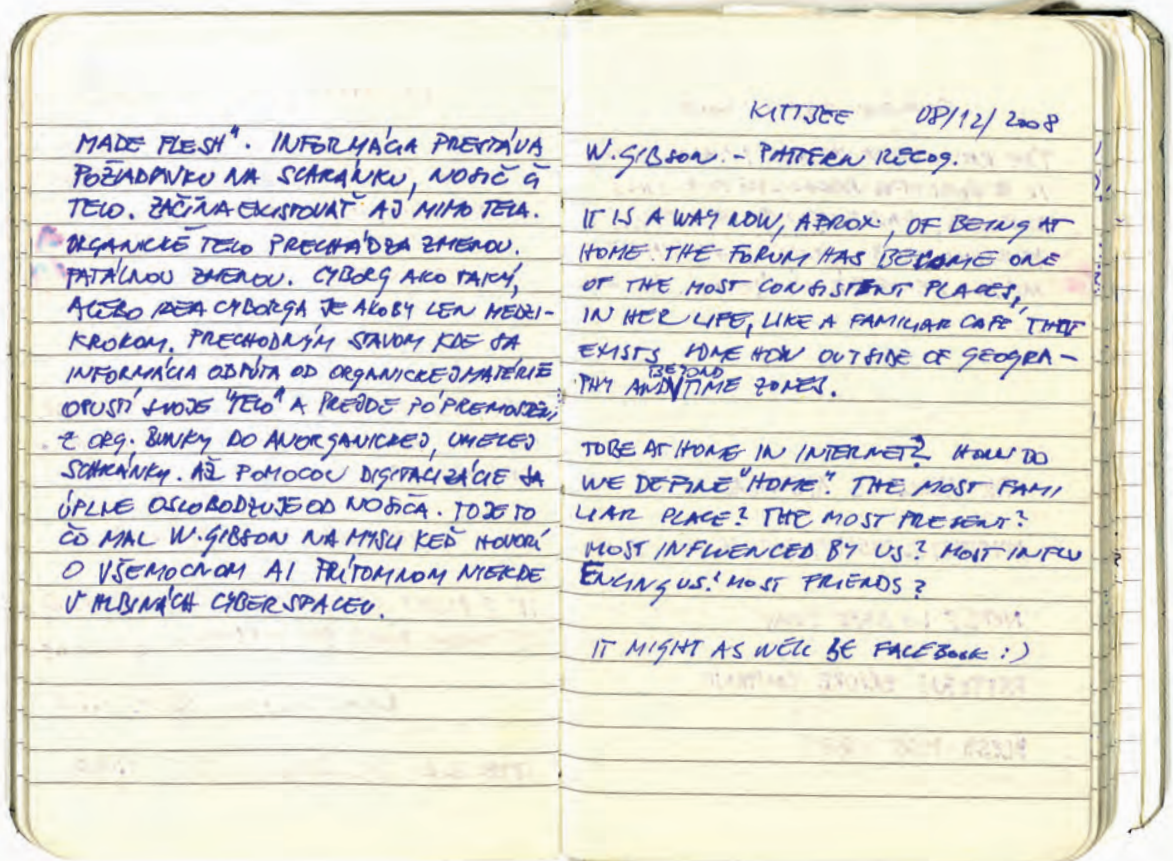 MADE FLESH". INFORMÁCIA PRESTÁVA
POŽIADAVKU NA SCHRÁNKU, NOSIČ ČI
TELO. ZAČÍNA EXISTOVAŤ AJ MIMO TELA.
ORGANICKÉ TELO PRECHÁDZA ZMENOU.
FATÁLNOU ZMENOU. CYBORG AKO TAKÝ,
ALEBO IDEA CYBORGA JE AKOBY LEN MEDZI-
KROKOM. PRECHODNÝM STAVOM KDE SA
INFORMÁCIA ODPÚTA OD ORGANICKEJ MATÉRIE
OPUSTÍ SVOJE "TELO" A PREJDE PO PREMOSTENÍ
Z ORG. BUNKY DO ANORGANICKEJ, UMELEJ
SCHRÁNKY. AŽ POMOCOU DIGITALIZÁCIE SA
ÚPLNE OSLOBODZUJE OD NOSIČA. TO JE TO
ČO MAL W. GIBSON NA MYSLI KEĎ HOVORÍ
O VŠEMOCNOM AI PRÍTOMNOM NIEKDE
V HLBINÁCH CYBERSPACEU.
KITTBEE 08/12/2008
W. GIBSON. - PATTERN RECOG.
IT IS A WAY NOW, APROX, OF BEING AT
HOME. THE FORUM HAS BECOME ONE
OF THE MOST CONSISTENT PLACES,
IN HER LIFE, LIKE A FAMILIAR CAFE THAT
EXISTS SOME HOW OUTSIDE OF GEOGRA-
PHY AND BEYOND TIME ZONES.
TO BE AT HOME IN INTERNET? HOW DO
WE DEFINE "HOME". THE MOST FAMI
LIAR PLACE? THE MOST PRESENT?
MOST INFLUENCED BY US? MOST INFLU
ENCING US? MOST FRIENDS?
IT MIGHT AS WELL BE FACEBOOK :)